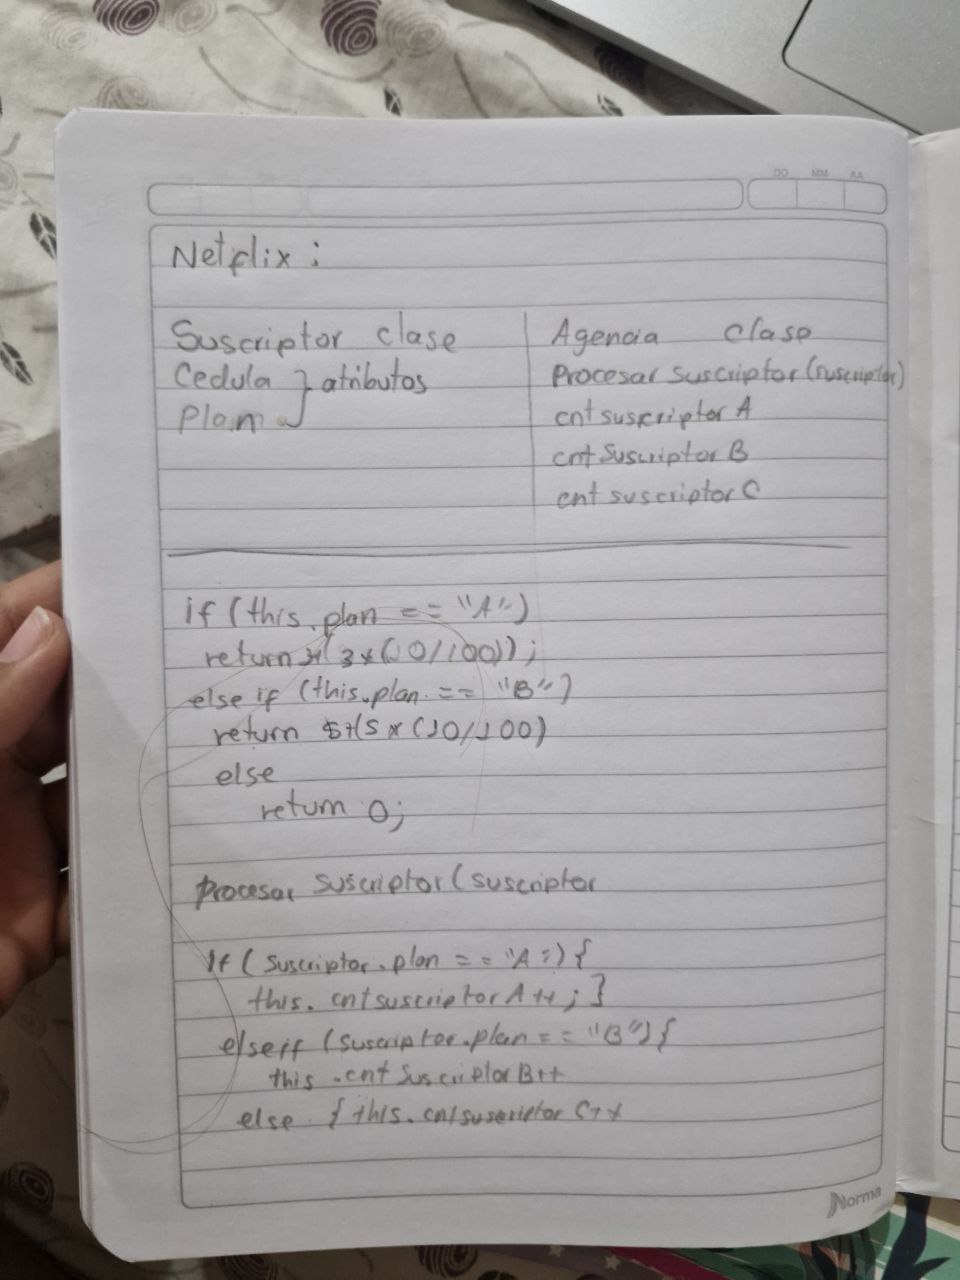 DD MM AA
Netflix :
Suscriptor clase
Cedula } atributos
Plan
Agencia clase
Procesar suscriptor (suscriptor)
cnt suscriptor A
cnt Suscriptor B
cnt suscriptor C
if (this.plan == "A")
return 3+(3*(10/100));
else if (this.plan == "B")
return 5+(5*(10/100)
else
return 0;
Procesar suscriptor (suscriptor
If (suscriptor.plan == "A"){
this.cntsuscriptor A++;}
elseif (suscriptor.plan == "B"){
this.cnt Suscriptor B++
else {this.cntsuscriptor C++
Norma